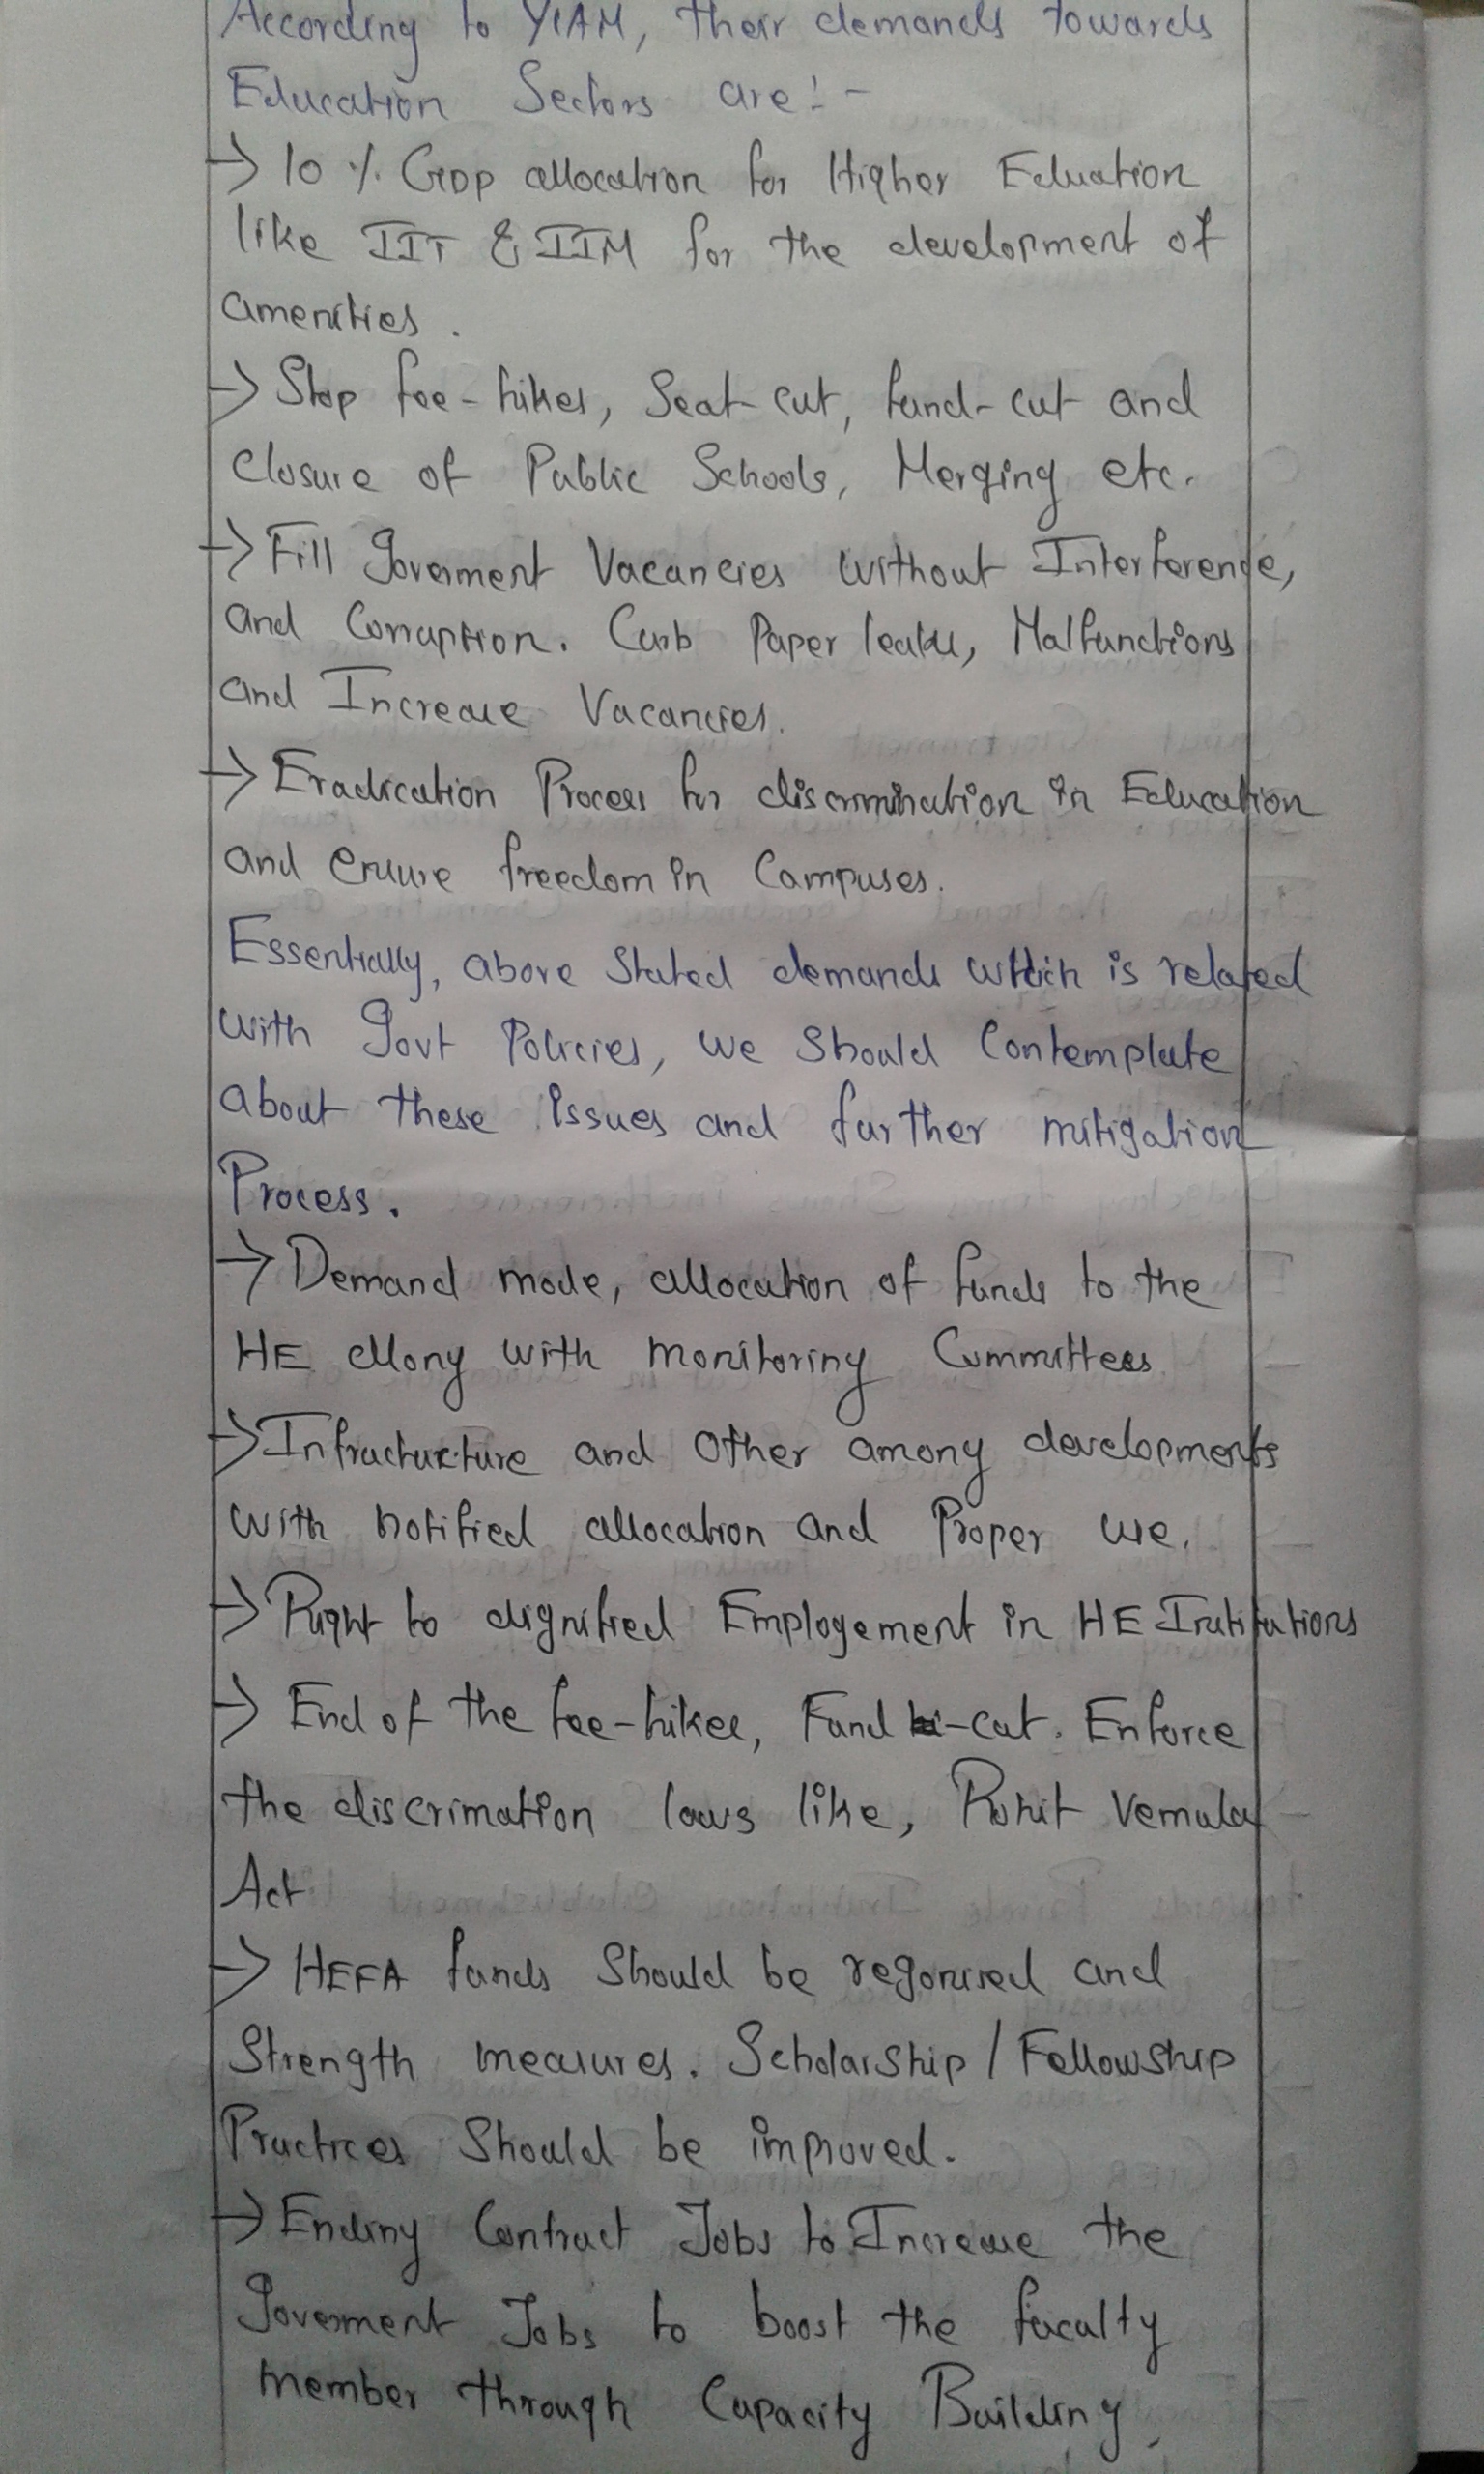 According to YIAM, their demands towards
Education Sectors are:-
→ 10 % GDP allocation for Higher Eduation
like IIT & IIM for the development of
amenities.
→ Stop fee-hikes, Seat-cut, fund-cut and
closure of Public Schools, Merging etc.
→ Fill Goverment Vacancies without Interference,
and Corruption. Curb Paper leaks, Malfunctions
and Increase Vacancies.
→ Eradication Process for discrimination in Education
and ensure freedom in Campuses.
Essentially, above stated demands which is related
with Govt Policies, we should Contemplate
about these issues and further mitigation
Process.
→ Demand made, allocation of funds to the
HE along with monitoring Committees.
→ Infracturcture and Other among developments
with notified allocation and Proper use.
→ Right to dignified Employement in HE Institutions
→ End of the fee-hikes, Fund -cut. Enforce
the discrimation laws like, Rohit Vemula
Act
→ HEFA funds should be regorised and
Strength measures. Scholarship / Fellowship
Practices Should be improved.
→ Ending Contract Jobs to Increase the
Goverment Jobs to boost the faculty
member through Capacity Building.